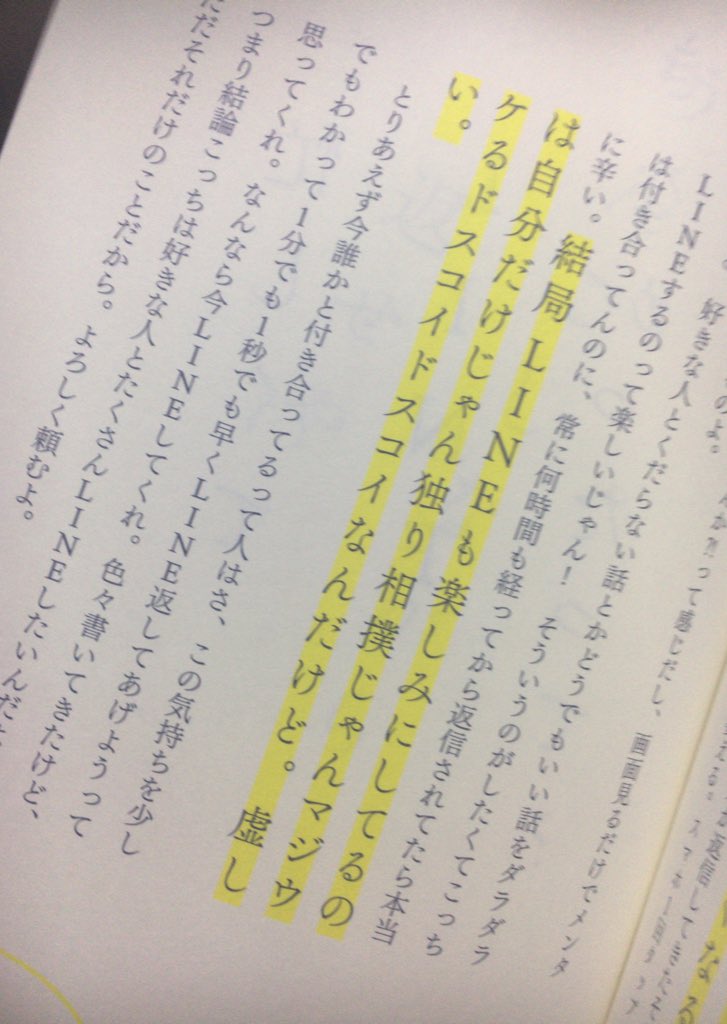 って感じだし、 画面見るだけでメンタ
好きな人とくだらない話とかどうでもいい話をダラダラ
LINEするのって楽しいじゃん! そういうのがしたくてこっち
は付き合ってんのに、常に何時間も経ってから返信されてたら本当
に辛い。結局LINEも楽しみにしてるの
は自分だけじゃん独り相撲じゃんマジウ
ケるドスコイドスコイなんだけど。 虚し
い。
とりあえず今誰かと付き合ってるって人はさ、この気持ちを少し
でもわかって1分でも1秒でも早くLINE返してあげようって
思ってくれ。なんなら今LINEしてくれ。色々書いてきたけど、
つまり結論こっちは好きな人とたくさんLINEしたいんだ
ただそれだけのことだから。よろしく頼むよ。